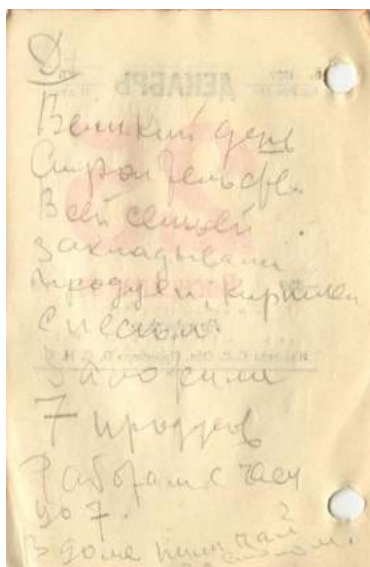 Д
Великий день
Строительства
Всей семьей
закладывали
продухи, кирпичем
с песком.
Заложили
7 продухов
Работали с часу
до 7.
В доме пили чай
за столом.